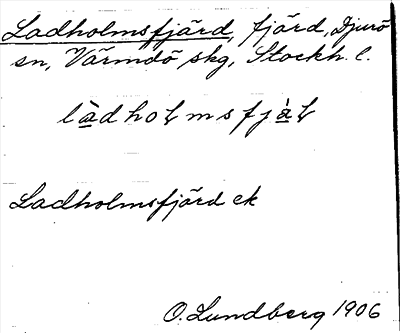 Ladholmsfjärd, fjärd, Djurö
sn, Värmdö skg, Stockh. l.
làdhoɫmsfjàɫ
Ladholmsfjärd ek
O. Lundberg 1906